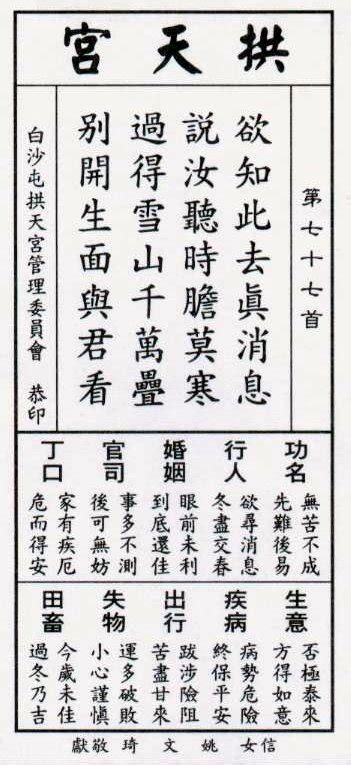 拱天宮
第七十七首
欲知此去眞消息
說汝聽時膽莫寒
過得雪山千萬疊
别開生面與君看
白沙屯拱天宮管理委員會 恭印
功名
無苦不成
先難後易
行人
欲尋消息
冬盡交春
婚姻
眼前未利
到底還佳
官司
事多不測
後可無妨
丁口
家有疾厄
危而得安
生意
否極泰來
方得如意
疾病
病勢危險
終保平安
出行
跋涉險阻
苦盡甘來
失物
運多破敗
小心謹慎
田畜
今歲未佳
過冬乃吉
信女 姚 文 琦 敬獻